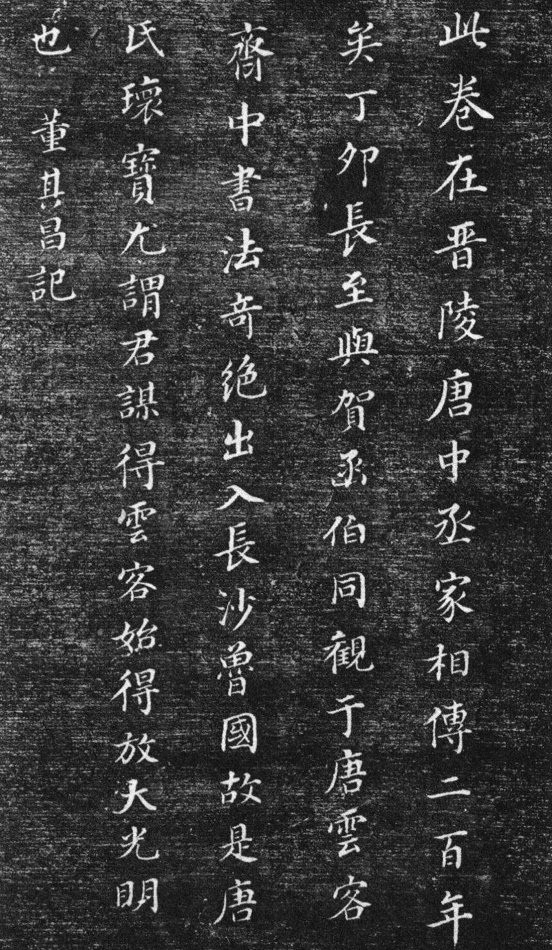 此卷在晋陵唐中丞家相傳二百年
矣丁卯長至與賀函伯同觀于唐雲客
齋中書法奇絶出入長沙魯國故是唐
氏瓌寶尤謂君謨得雲客始得放大光明
也 董其昌記